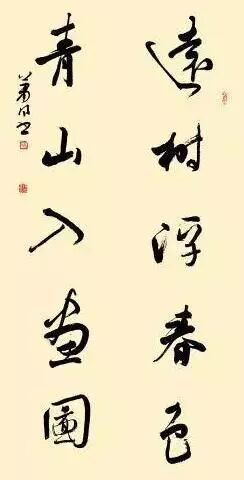 遠樹浮春色
青山入畫圖